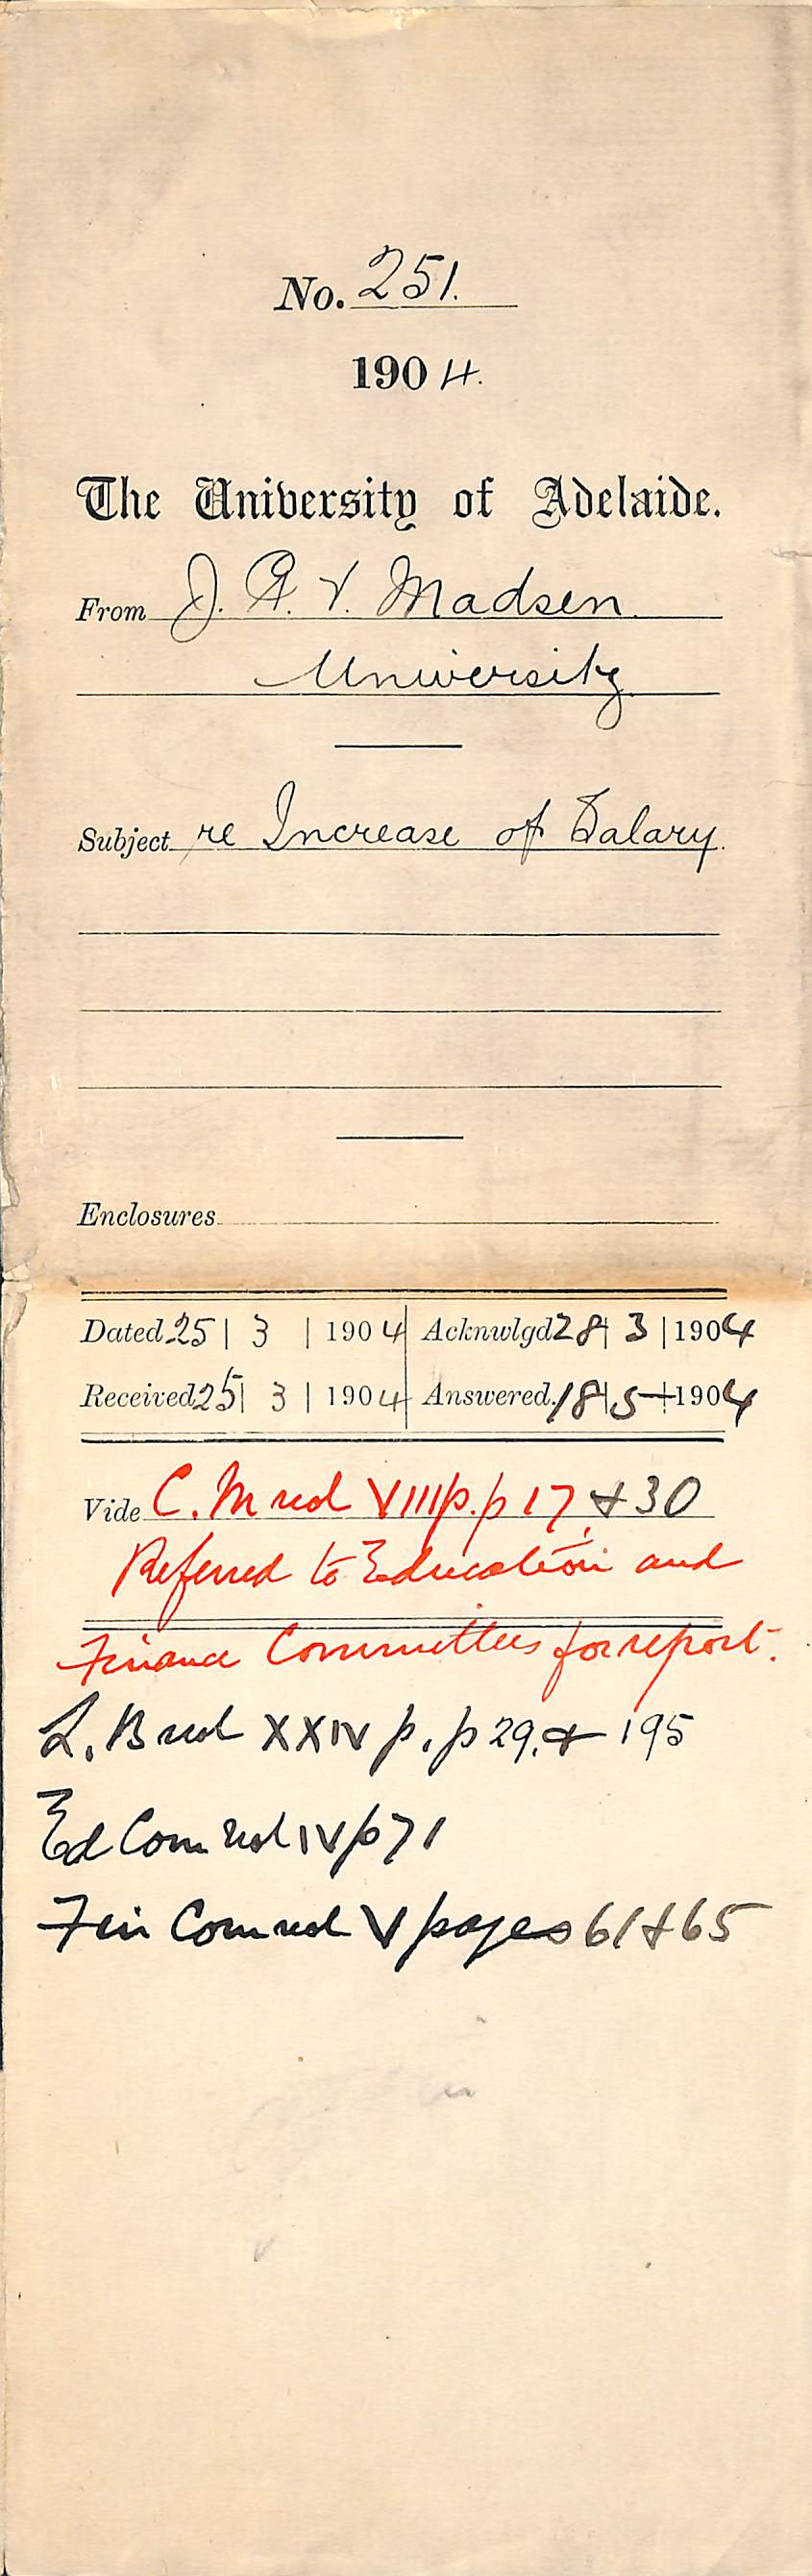 No. 251.
1904.
The University of Adelaide.
From J. P. V. Madsen.
University
Subject re Increase of Salary.
Enclosures
Dated 25 | 3 | 1904 Acknwlgd 28 | 3 | 1904
Received 25 | 3 | 1904 Answered. 18 | 5 | 1904
Vide C. M vol VIII p. p 17, & 30
Referred to Education and
Finance Committees for report.
L. B vol XXIV p. p 29, & 195
Ed Com vol IV p 71
Fin Com vol V pages 61 & 65